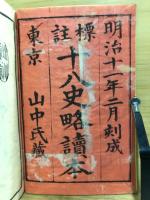 明治十一年二月刻成
標註
十八史略讀本
東京
山中氏藏